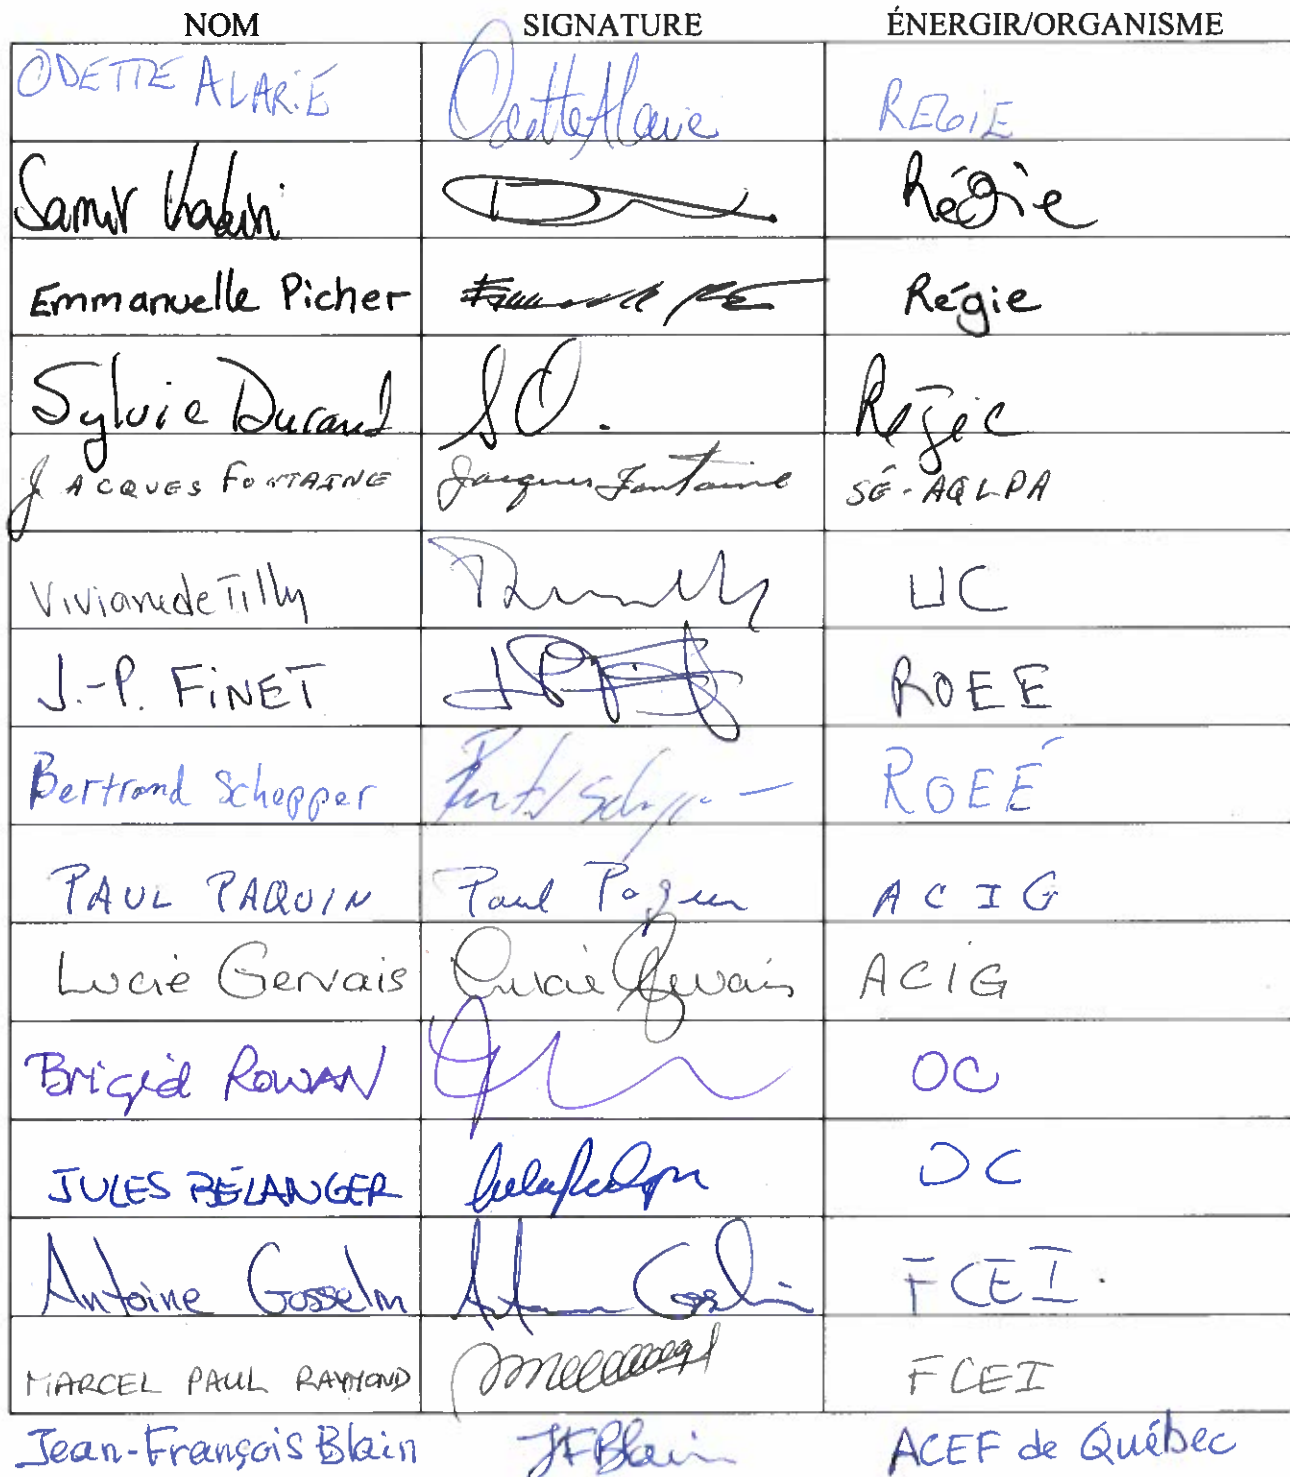 NOM SIGNATURE ÉNERGIR/ORGANISME
ODETTE ALARIE Odette Alarie REGIE
Samir Régie
Emmanuelle Picher Régie
Sylvie Durand S D. Régie
JACQUES FONTAINE Jacques Fontaine SÉ-AQLPA
Viviane de Tilly UC
J.-P. FINET ROEE
Bertrand Schepper ROEÉ
PAUL PAQUIN Paul Paquin ACIG
Lucie Gervais Lucie Gervais ACIG
Brigid ROWAN OC
JULES BÉLANGER OC
Antoine Gosselin Antoine Gosselin FCEI.
MARCEL PAUL RAYMOND FCEI
Jean-François Blain JFBlain ACEF de Québec